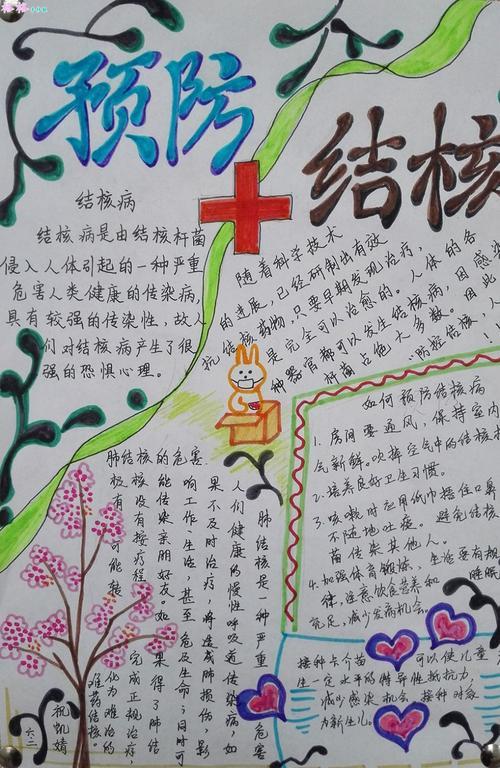 预防
结核
结核病
结核病是由结核杆菌
侵入人体引起的一种严重
危害人类健康的传染病,
具有较强的传染性,故人
们对结核病产生了很
强的恐惧心理。
随着科学技术
的进展,已经研制出有效
抗结核药物,只要早期发现治疗,
是完全可以治愈的。人体的各
种器官都可以发生结核病,因感
占绝大多数。因此
防控结核,
如何预防结核病
1.房间要通风,保持室内
气新鲜。吹掉空气中的结核
2.培养良好卫生习惯。
3.咳嗽时应用纸巾捂住口鼻
不随地吐痰。避免结核
菌传染其他人。
4.加强体育锻炼,生活要有规
律,注意饮食营养和睡眠
充足,减少发病机会。
肺结核的危害
肺结核是一种严重危害
人们健康的慢性呼吸道传染病,如
果不及时治疗,将造成肺损伤,影
响工作、生活,甚至危及生命;同时可
能传染亲朋好友。如果得了肺结
核没有按疗程完成正规治疗,
极有可能转化为难治的
难药结核。
接种卡介苗可以使儿童
生一定水平的特异性抵抗力,
减少感染机会。接种对象
为新生儿。
六.二
祝凯婧